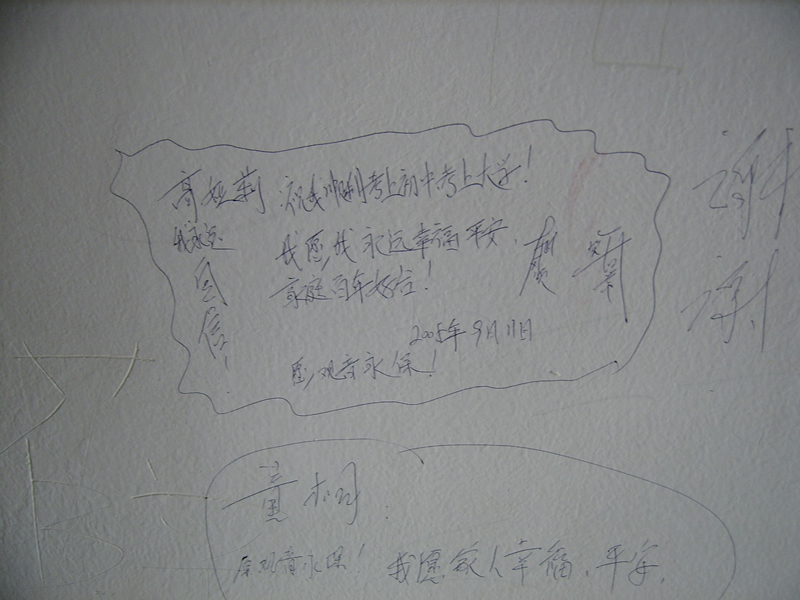 祝我顺利考上初中考上大学!
我永远
自信!
我愿我永远幸福平安、
家庭百年好合!
2005年9月11日
愿观音永保!
谢
谢
童桐
愿观音永保! 我愿家人幸福、平安、